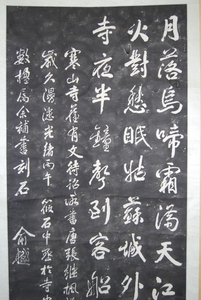 月落烏啼霜滿天江
火對愁眠姑蘇城外
寺夜半鐘聲到客船
寒山寺舊有文待詔所書唐張繼楓
歲久漫漶光緒丙午筱石中丞於寺中
數楹屬余補書刻石
俞樾